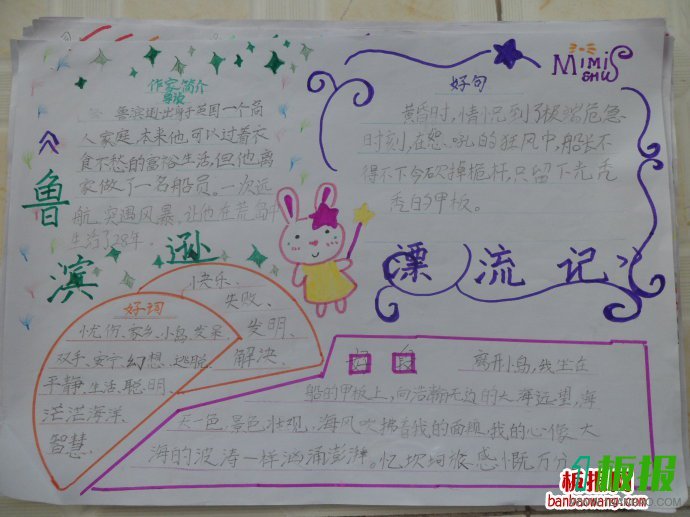 MIMI SHU
《鲁滨逊
漂流记》
作家简介
导读
鲁滨逊出身于英国一个商
人家庭,本来他可以过着衣
食不愁的富裕生活,但他离
家做了一名船员。一次远
航,突遇风暴,让他在荒岛中
生活了28年.
好句
黄昏时,情况到了极端危急
时刻,在怒吼的狂风中,船长不
得不下令砍掉桅杆,只留下光秃
秃的甲板。
好词
忧伤、家乡、小岛、发呆、
双手、安宁、幻想、逃脱、
平静、生活、聪明、
茫茫海洋、
智慧、
快乐、
失败、
发明、
解决、
离开小岛,我坐在
船的甲板上,向浩瀚无边的大海远望,海
天一色,景色壮观,海风吹拂着我的面颊,我的心像大
海的波涛一样汹涌澎湃。忆坎坷旅,感慨万分
板报
板报网
banbaowang.com